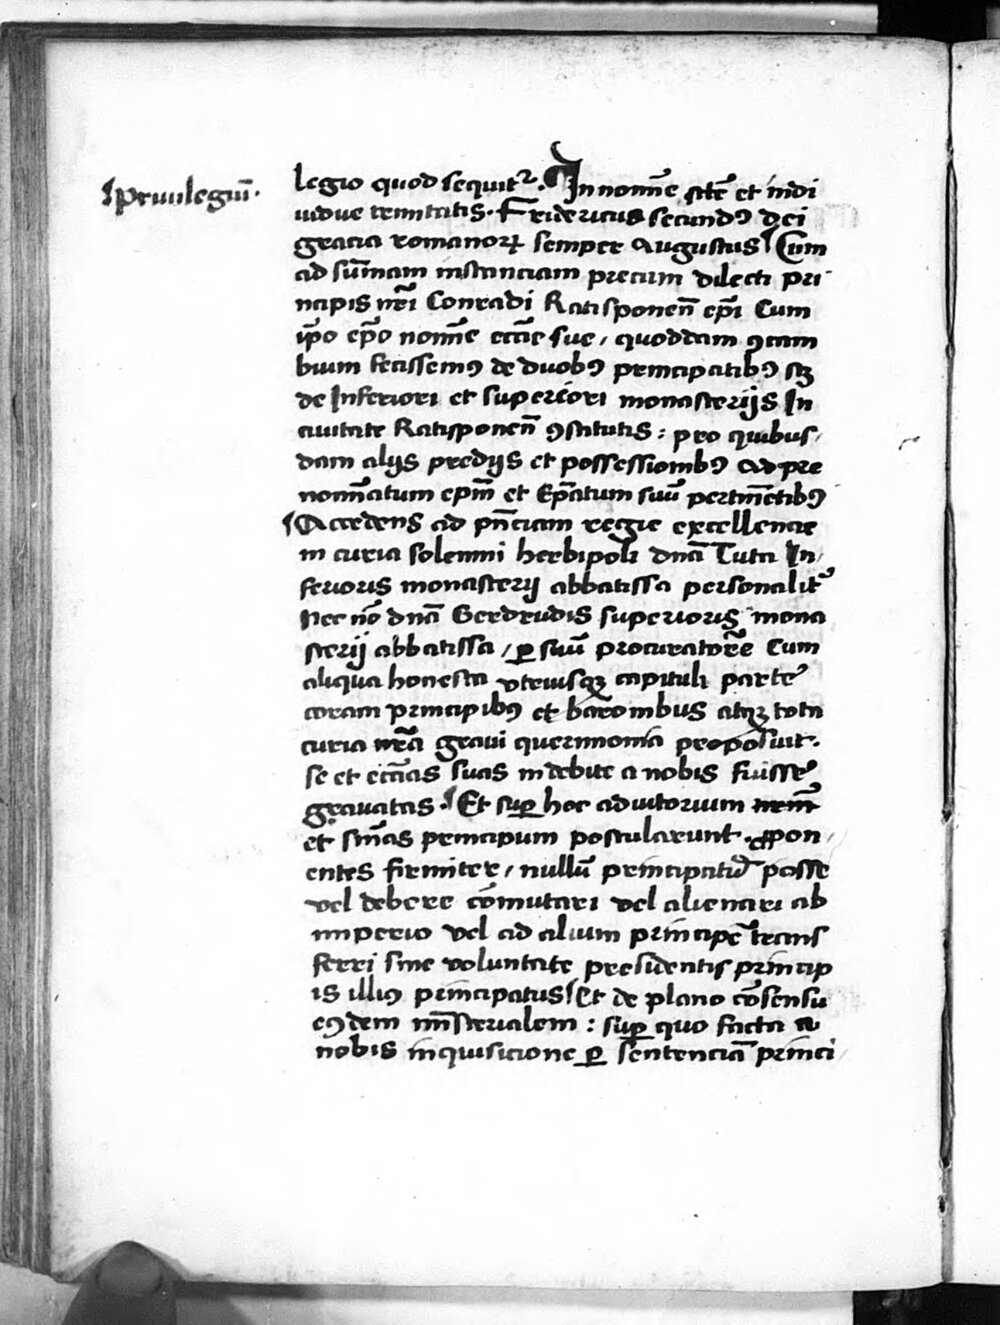 Priuilegiū.
legio quod sequit᷑. In nomīe sctē et indi
uidue trinitatis. Fridericus secundꝰ dei
gracia romanorꝝ semper Augustus Cum
ad sūmam instanciam precum dilecti pri
ncipis nr̄i Conradi Ratisponen̄ ep̄i Cum
ip̄o ep̄o nomīe ecc̄ie sue, quoddam ꝯcam
bium fecissemꝰ de duobꝰ principatibꝰ scꝫ
de Inferiori et superiori monasterijs In
ciuitate Ratisponen̄ ꝯstitutis: pro quibus,
dam alijs predijs et possessionibꝰ ad pre
nomīatum epm̄ et Ep̄atum suū pertinētibꝰ
Accedens ad pn̄ciam regie excellencie
in curia solenni herbipoli dn̄a Tuta In,
ferioris monasterij abbatissa personalit᷑
Nec nō dn̄a Gerdrudis superioris mona
sterij abbatissa, ꝑ suū procuratorē Cum
aliqua honesta vtriusqꝫ capituli parte
coram principibꝰ et baronibus atqꝫ tota
curia nr̄a graui querimonia proposuit.
se et ecc̄ias suas indebite a nobis fuisse
grauatas. Et suꝑ hoc adiutorium nr̄m̄
et sn̄ias principum postularunt. ꝓpon,
entes firmiter, nullū principatū posse
vel debere cōmutari vel alienari ab
imperio vel ad alium principē trans
ferri sine voluntate presidentis princip
is illiꝰ principatus Et de plano cōsensu
eꝰdem mīsterialem: suꝑ quo facta a
nobis inquisicione ꝑ sentenciā princi,